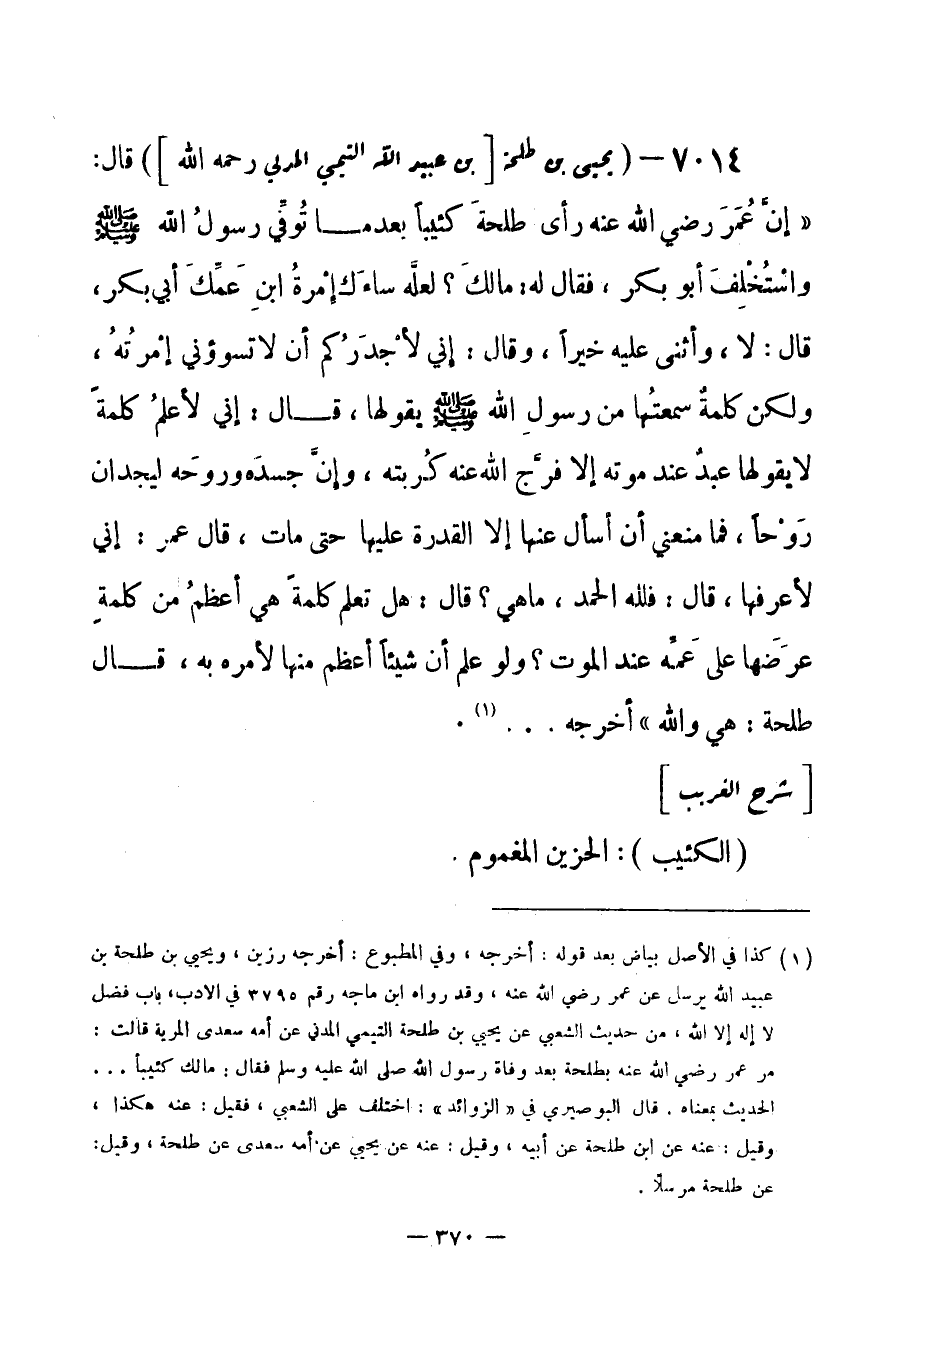 ٧٠١٤ — ( يحيى بن طلحة [ بن عبيد الله التيمي المدني رحمه الله ] ) قال :
« إنَّ عُمَرَ رضي الله عنه رأى طلحةَ كئيباً بعدمــا تُوفِّي رسولُ الله ﷺ
واسْتُخْلِفَ أبو بكر ، فقال له: مالكَ ؟ لعلَّه ساءكَ إمْرةُ ابنِ عَمِّكَ أبي بكر ،
قال : لا ، وأثنى عليه خيراً ، وقال : إني لأجْدَرُكم أن لا تسوؤني إمْرتُهُ ،
ولكن كلمةٌ سمعتُها من رسولِ الله ﷺ يقولها ، قــال : إني لأعلمُ كلمةً
لا يقولها عبدٌ عند موته إلا فرَّج الله عنه كُربته ، وإنَّ جسدَه وروحَه ليجدان
رَوْحاً ، فما منعني أن أسأل عنها إلا القدرة عليها حتى مات ، قال عمر : إني
لأعرفها ، قال : فلله الحمد ، ماهي ؟ قال : هل تعلم كلمةً هي أعظمُ من كلمةٍ
عرَضَها على عَمِّه عند الموت ؟ ولو علم أن شيئاً أعظم منها لأمره به ، قــال
طلحة : هي والله » أخرجه . . . (١) .
[ شرح الغريب ]
( الكئيب ) : الحزين المغموم .
(١) كذا في الأصل بياض بعد قوله : أخرجه ، وفي المطبوع : أخرجه رزين ، ويحيى بن طلحة بن
عبيد الله يرسل عن عمر رضي الله عنه ، وقد رواه ابن ماجه رقم ٣٧٩٥ في الادب، باب فضل
لا إله إلا الله ، من حديث الشعبي عن يحيى بن طلحة التيمي المدني عن أمه سعدى المرية قالت :
مر عمر رضي الله عنه بطلحة بعد وفاة رسول الله صلى الله عليه وسلم فقال : مالك كئيباً . . .
الحديث بمعناه . قال البوصيري في « الزوائد » : اختلف على الشعبي ، فقيل : عنه هكذا ،
وقيل : عنه عن ابن طلحة عن أبيه ، وقيل : عنه عن يحيى عن أمه سعدى عن طلحة ، وقيل:
عن طلحة مرسلاً .
— ٣٧٠ —